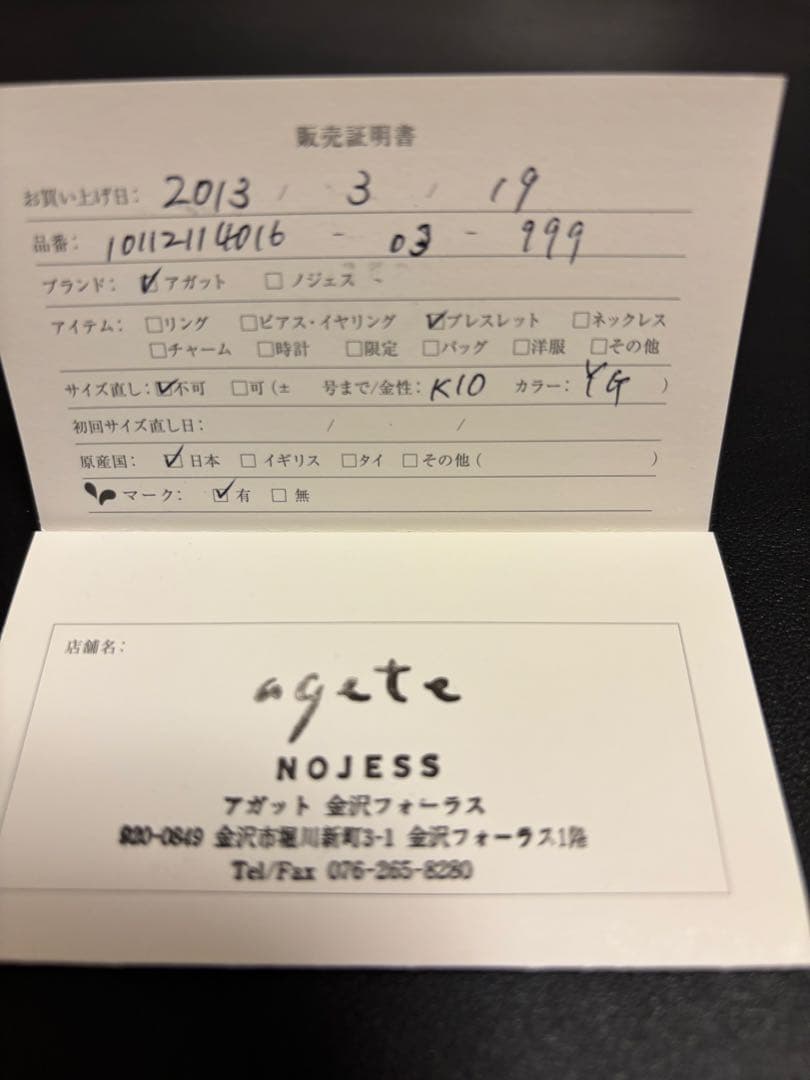 販売証明書
お買い上げ日： 2013 / 3 / 19
品番： 10112114016 - 03 - 999
ブランド： ☑アガット □ノジェス
アイテム： □リング □ピアス・イヤリング ☑ブレスレット □ネックレス
□チャーム □時計 □限定 □バッグ □洋服 □その他
サイズ直し：☑不可 □可（± 号まで/金性：K10 カラー：YG ）
初回サイズ直し日： / /
原産国： ☑日本 □イギリス □タイ □その他（ ）
マーク： ☑有 □無
店舗名：
agete
NOJESS
アガット 金沢フォーラス
920-0849 金沢市堀川新町3-1 金沢フォーラス1階
Tel/Fax 076-265-8280